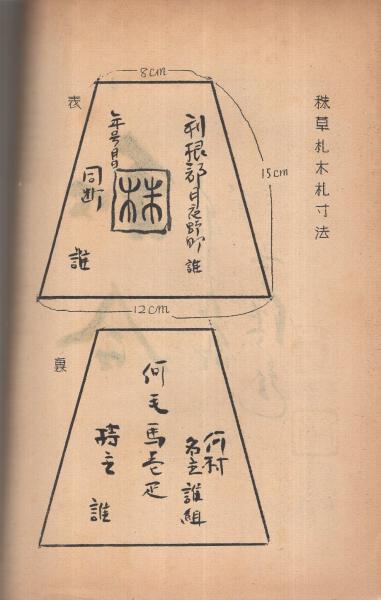 秣草札木札寸法
8cm
15cm
12cm
表
利根郡月夜野町 誰
秣
年号月日
同断 誰
裏
何村
名主誰組
何毛馬壱疋
持主 誰